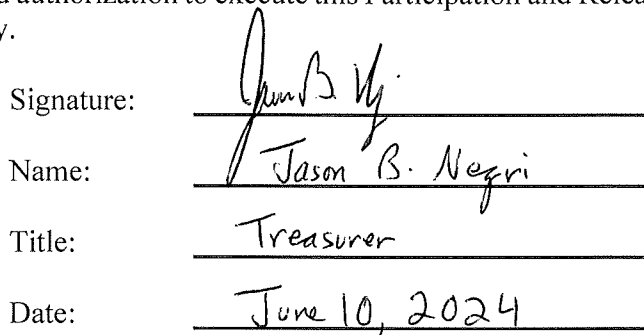 d authorization to execute this Participation and Relea
y.
Signature:
Name: Jason B. Negri
Title: Treasurer
Date: June 10, 2024